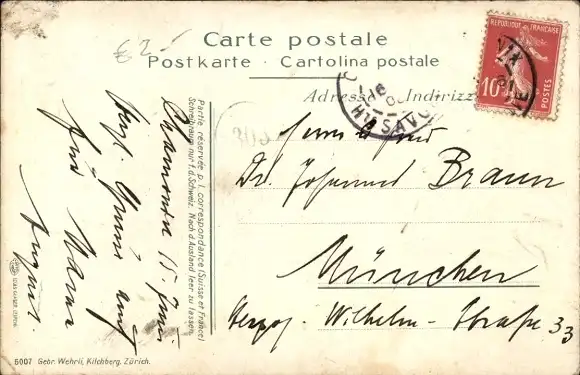 £2-
Carte postale
Postkarte - Cartolina postale
Adresse Indirizz
REPUBLIQUE FRANÇAISE
10
POSTES
Hte SAVOIE
305
Herrn
Dr. Johannes Braun
München
Herzog-Wilhelm-Straße 33
Partie réservée p. l. correspondance (Suisse et France)
Schreibraum nur f. d. Schweiz. Nach d. Ausland leer zu lassen.
Chamonix 15. Juni
Grüsse
August
6007 Gebr. Wehrli, Kilchberg, Zürich.